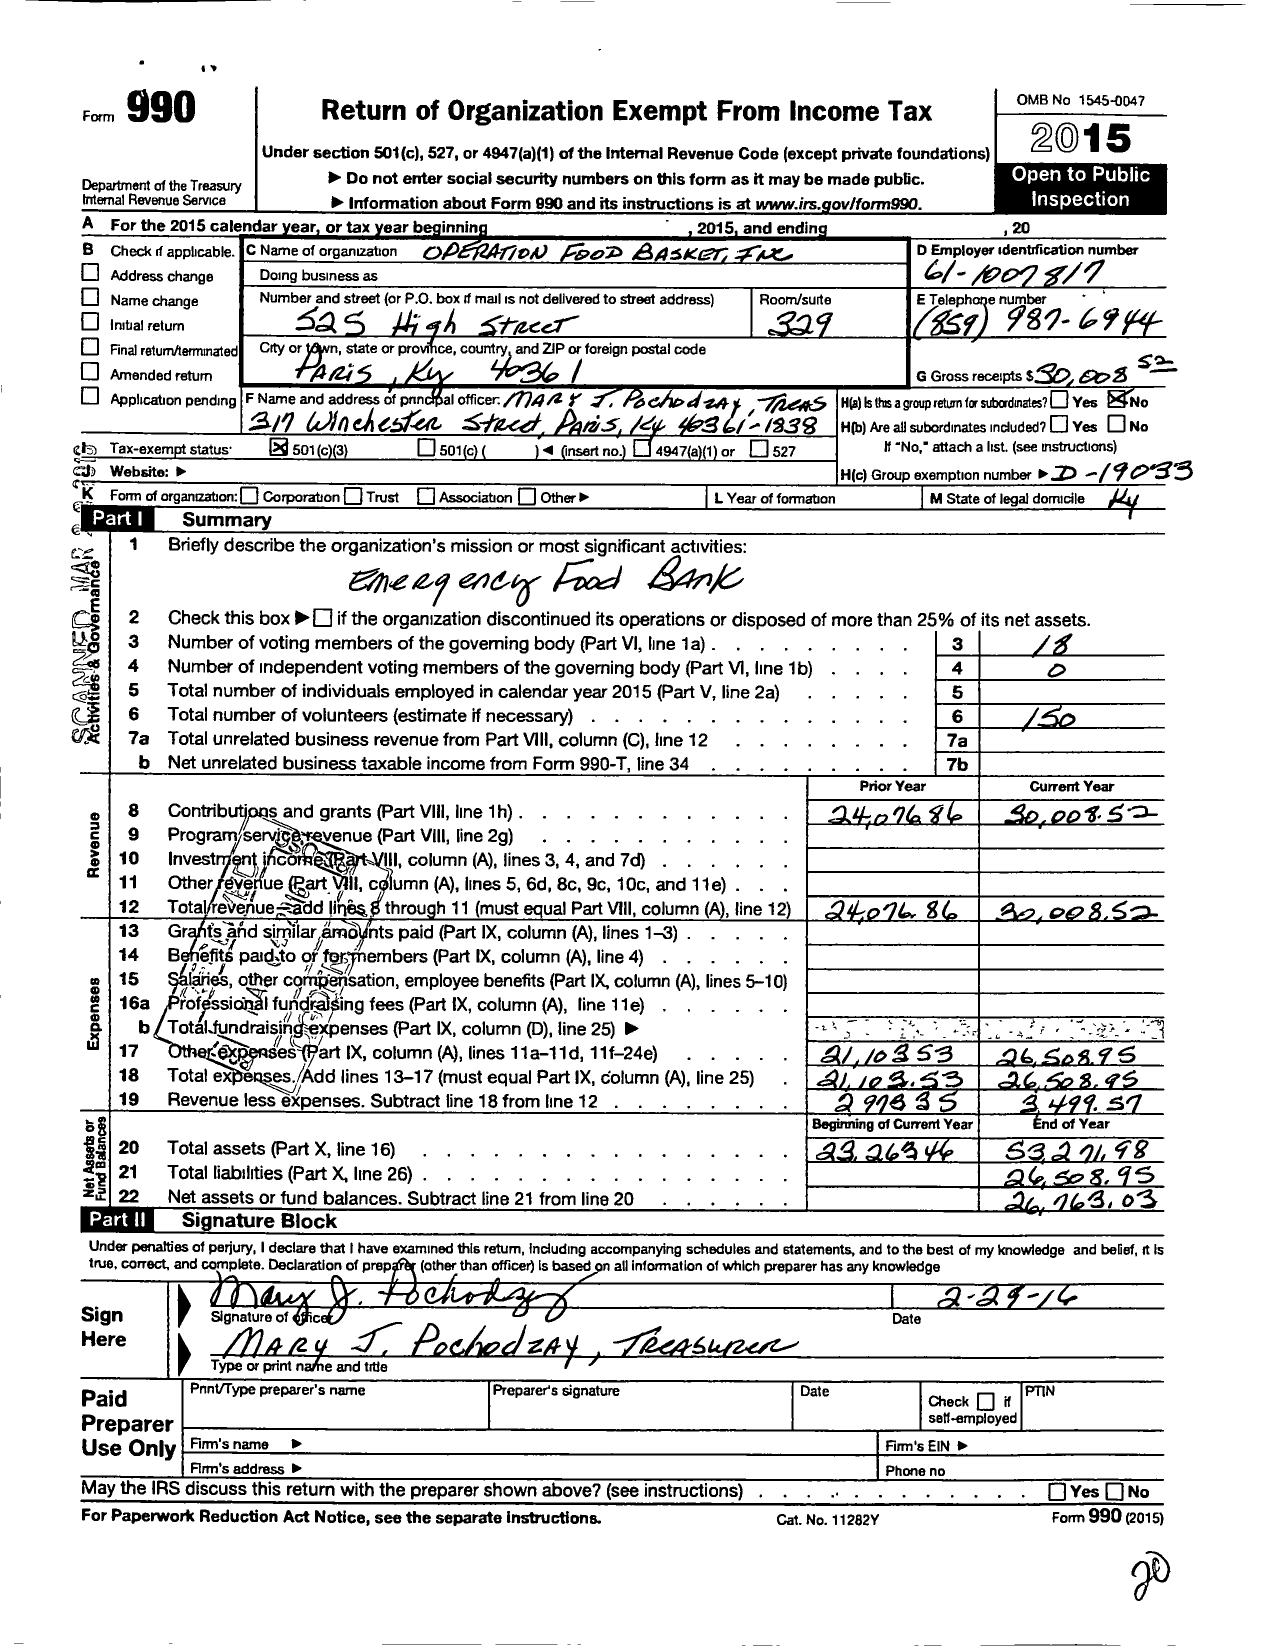 Form 990
Return of Organization Exempt From Income Tax
OMB No 1545-0047
2015
Under section 501(c), 527, or 4947(a)(1) of the Internal Revenue Code (except private foundations)
▶ Do not enter social security numbers on this form as it may be made public.
▶ Information about Form 990 and its instructions is at www.irs.gov/form990.
Department of the Treasury
Internal Revenue Service
Open to Public
Inspection
A For the 2015 calendar year, or tax year beginning , 2015, and ending , 20
B Check if applicable.
Address change
Name change
Initial return
Final return/terminated
Amended return
Application pending
C Name of organization OPERATION FOOD BASKET, INC
Doing business as
Number and street (or P.O. box if mail is not delivered to street address) Room/suite
525 High Street 329
City or town, state or province, country, and ZIP or foreign postal code
PARIS, Ky 40361
D Employer identification number
61-1007817
E Telephone number
(859) 987-6944
G Gross receipts $ 30,008 52
F Name and address of principal officer: MARY J. Pochodzay, TREAS
317 Winchester Street, Paris, Ky 40361-1838
H(a) Is this a group return for subordinates? Yes No
H(b) Are all subordinates included? Yes No
If "No," attach a list. (see instructions)
H(c) Group exemption number ▶ D-19033
Tax-exempt status: 501(c)(3) 501(c) ( ) ◀ (insert no.) 4947(a)(1) or 527
Website: ▶
K Form of organization: Corporation Trust Association Other ▶ L Year of formation M State of legal domicile Ky
Part I Summary
SCANNED MAR
Activities & Governance
1 Briefly describe the organization's mission or most significant activities:
Emergency Food BANK
2 Check this box ▶ if the organization discontinued its operations or disposed of more than 25% of its net assets.
3 Number of voting members of the governing body (Part VI, line 1a) 3 18
4 Number of independent voting members of the governing body (Part VI, line 1b) 4 0
5 Total number of individuals employed in calendar year 2015 (Part V, line 2a) 5
6 Total number of volunteers (estimate if necessary) 6 150
7a Total unrelated business revenue from Part VIII, column (C), line 12 7a
b Net unrelated business taxable income from Form 990-T, line 34 7b
Prior Year Current Year
Revenue
8 Contributions and grants (Part VIII, line 1h) 24,076 86 30,008.52
9 Program service revenue (Part VIII, line 2g)
10 Investment income (Part VIII, column (A), lines 3, 4, and 7d)
11 Other revenue (Part VIII, column (A), lines 5, 6d, 8c, 9c, 10c, and 11e)
12 Total revenue—add lines 8 through 11 (must equal Part VIII, column (A), line 12) 24,076.86 30,008.52
Expenses
13 Grants and similar amounts paid (Part IX, column (A), lines 1–3)
14 Benefits paid to or for members (Part IX, column (A), line 4)
15 Salaries, other compensation, employee benefits (Part IX, column (A), lines 5–10)
16a Professional fundraising fees (Part IX, column (A), line 11e)
b Total fundraising expenses (Part IX, column (D), line 25) ▶
17 Other expenses (Part IX, column (A), lines 11a–11d, 11f–24e) 21,103 53 26,508.95
18 Total expenses. Add lines 13–17 (must equal Part IX, column (A), line 25) 21,103.53 26,508.95
19 Revenue less expenses. Subtract line 18 from line 12 2 973 35 3,499.57
Beginning of Current Year End of Year
Net Assets or Fund Balances
20 Total assets (Part X, line 16) 23,263 46 53,271.98
21 Total liabilities (Part X, line 26) 26,508.95
22 Net assets or fund balances. Subtract line 21 from line 20 26,763.03
Part II Signature Block
Under penalties of perjury, I declare that I have examined this return, including accompanying schedules and statements, and to the best of my knowledge and belief, it is
true, correct, and complete. Declaration of preparer (other than officer) is based on all information of which preparer has any knowledge
Sign Here
Mary J. Pochodzay 2-29-16
Signature of officer Date
MARY J. POCHODZAY, TREASURER
Type or print name and title
Paid Preparer Use Only
Print/Type preparer's name Preparer's signature Date Check if self-employed PTIN
Firm's name ▶ Firm's EIN ▶
Firm's address ▶ Phone no
May the IRS discuss this return with the preparer shown above? (see instructions) Yes No
For Paperwork Reduction Act Notice, see the separate instructions. Cat. No. 11282Y Form 990 (2015)
20